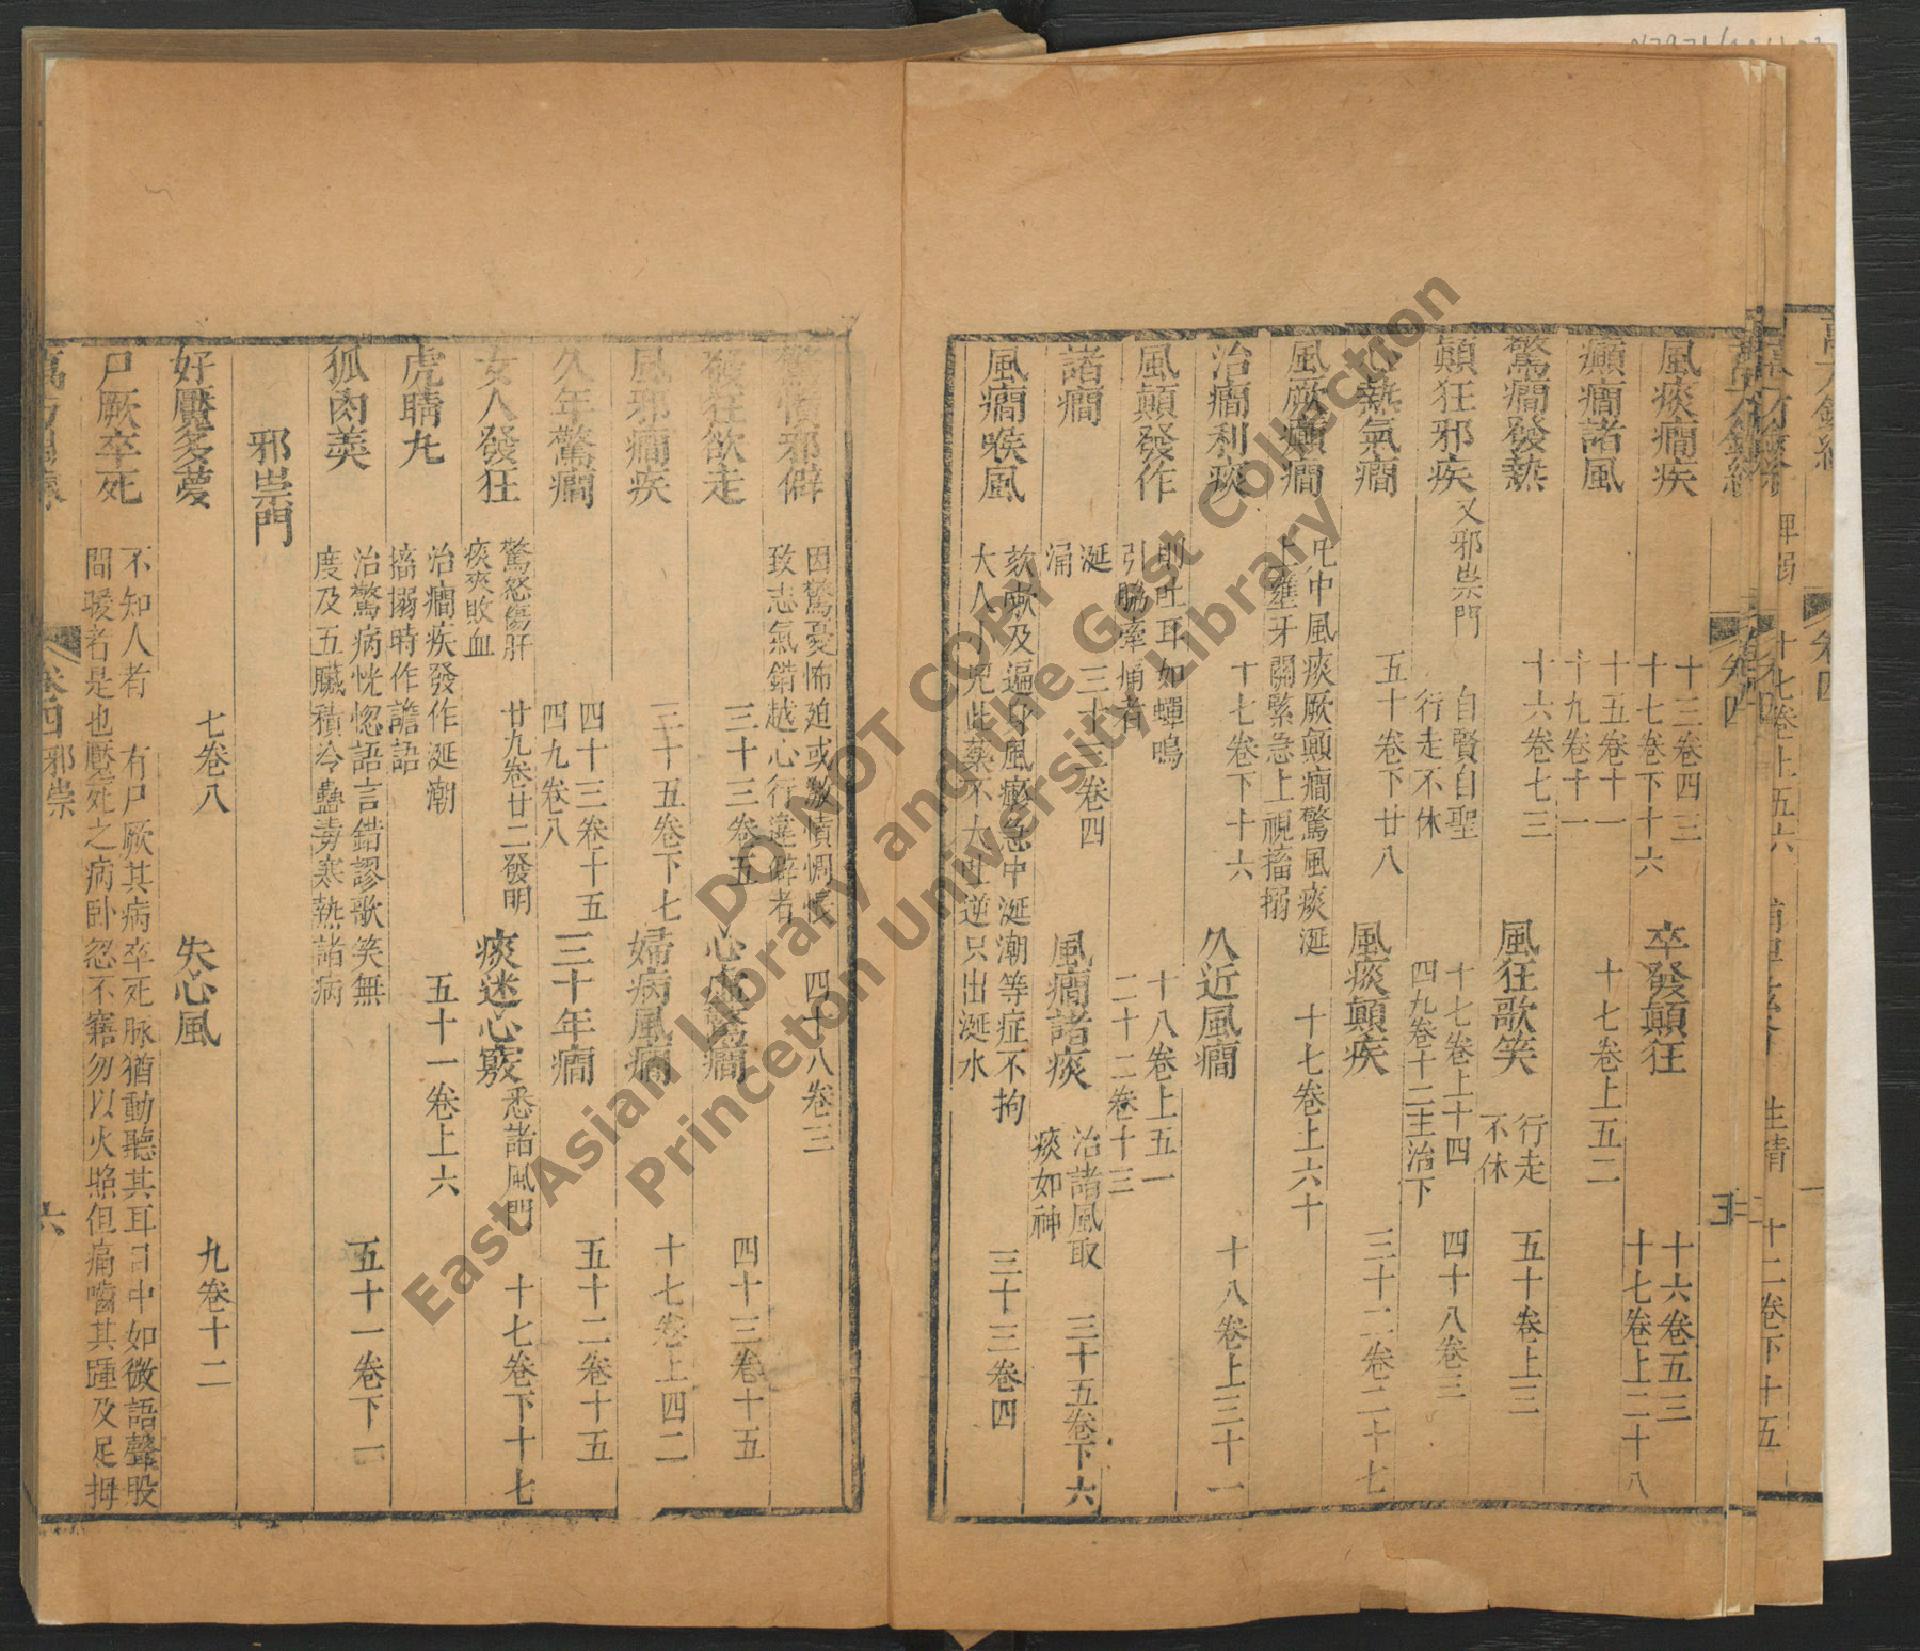 風痰癎疾 十三卷四三 十七卷下十六 卒發顛狂 十六卷五三 十七卷上二十八
癲癎諸風 十五卷十一 十九卷十一 十七卷上五二
驚癎發熱 十六卷七三 風狂歌笑 行走不休 五十卷上三
顛狂邪疾 又邪祟門 自賢自聖 行走不休 十七卷上十四 四九卷十二主治下 四十八卷三
熱氣癎 五十卷下廿八 風痰顛疾 三十二卷二十七
風厥癲癎 中風痰厥顛癎驚風痰涎上壅牙關緊急上視搐搦 十七卷上六十
治癎利痰 十七卷下十六 久近風癎 十八卷上三十一
風顛發作 則吐耳如蟬鳴引脇牽痛者 十八卷上五一 二十二卷十三
諸癎 涎涌 三十三卷四 風癎諸痰 治諸風取痰如神 三十五卷下六
風癎喉風 欬嗽及遍身風 急中涎潮等症不拘大人小兒此藥不大吐逆只出涎水 三十三卷四
邪僻 因驚憂怖廹或激憤惆悵致志氣錯越心行違僻者 四十八卷三
發狂欲走 三十三卷五 心 癎 四十三卷十五
風邪癎疾 三十五卷下七 婦病風癎 十七卷上四二
久年驚癎 四十三卷十五 四九卷八 三十年癎 五十二卷十五
女人發狂 驚怒傷肝痰夾敗血 廿九卷廿二發明 痰迷心竅 悉諸風門 十七卷下十七
虎睛丸 治癎疾發作涎潮搐搦時作譫語 五十一卷上六
狐肉羮 治驚病恍惚語言錯謬歌笑無度及五臟積冷蠱毒寒熱諸病 五十一卷下一
邪祟門
好魘多夢 七卷八 失心風 九卷十二
尸厥卒死 不知人者 有尸厥其病卒死脉猶動聽其耳目中如微語聲股間暖者是也壓死之病卧忽不寤勿以火照但痛嚙其踵及足拇
卷四 邪祟 六